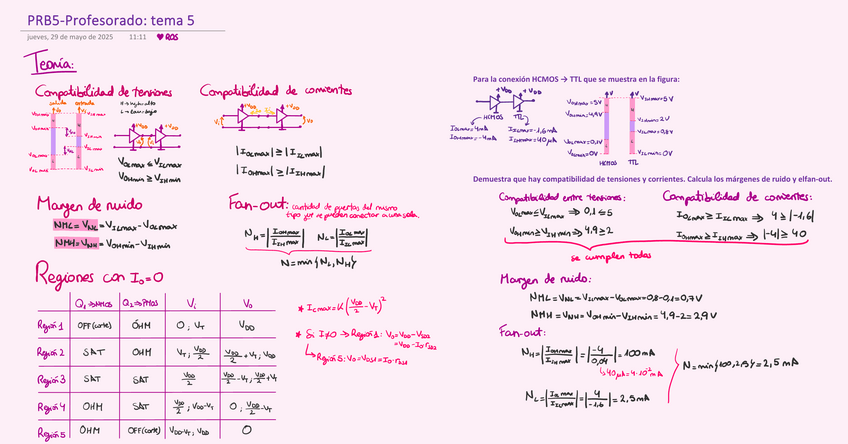 PRB5-Profesorado: tema 5
jueves, 29 de mayo de 2025 11:11 ♥ ROS
Teoría:
Compatibilidad de tensiones
salida entrada
H → high = alto
L → low = bajo
V_OLmax ≤ V_ILmax
V_OHmin ≥ V_IHmin
Compatibilidad de corrientes
+VDD +VDD
|I_OLmax| ≥ |I_ILmax|
|I_OHmax| ≥ |I_IHmax|
Margen de ruido
NML = V_NL = V_ILmax - V_OLmax
NMH = V_NH = V_OHmin - V_IHmin
Fan-out: cantidad de puertas del mismo
tipo que se pueden conectar a una sola.
N_H = |I_OHmax / I_IHmax| N_L = |I_OLmax / I_ILmax|
N = min{N_L, N_H}
Regiones con I_o = 0
Q1 → NMOS Q2 → PMOS Vi Vo
Región 1 OFF (corte) ÓHM 0 ; VT VDD
Región 2 SAT OHM VT ; VDD/2 VDD/2 + VT ; VDD
Región 3 SAT SAT VDD/2 VDD/2 - VT ; VDD/2 + VT
Región 4 OHM SAT VDD/2 ; VDD - VT 0 ; VDD/2 - VT
Región 5 ÓHM OFF (corte) VDD - VT ; VDD 0
* I_cmax = K (VDD/2 - VT)²
* Si I≠0 → Región 1: Vo = VDD - VSD2
= VDD - Io·rds2
↳ Región 5: Vo = VDS1 = Io·rds1
Para la conexión HCMOS → TTL que se muestra en la figura:
+VDD +VDD
HCMOS TTL
I_OLmax = 4mA I_ILmax = -1,6mA
I_OHmax = -4mA I_IHmax = 40μA
V_OHmax = 5V V_IHmax = 5V
V_OHmin = 4,9V V_IHmin = 2V
V_ILmax = 0,8V
V_OLmax = 0,1V
V_OLmin = 0V V_ILmin = 0V
HCMOS TTL
Demuestra que hay compatibilidad de tensiones y corrientes. Calcula los márgenes de ruido y elfan-out.
Compatibilidad entre tensiones:
V_OLmax ≤ V_ILmax ⇒ 0,1 ≤ 5
V_OHmin ≥ V_IHmin ⇒ 4,9 ≥ 2
Compatibilidad de corrientes:
I_OLmax ≥ I_ILmax ⇒ 4 ≥ |-1,6|
I_OHmax ≥ I_IHmax ⇒ |-4| ≥ 40
se cumplen todas
Margen de ruido:
NML = V_NL = V_ILmax - V_OLmax = 0,8 - 0,1 = 0,7 V
NMH = V_NH = V_OHmin - V_IHmin = 4,9 - 2 = 2,9 V
Fan-out:
N_H = |I_OHmax / I_IHmax| = |-4 / 0,04| = 100 mA
↳ 40 μA = 4·10⁻² mA
N_L = |I_OLmax / I_ILmax| = |4 / -1,6| = 2,5 mA
N = min{100, 2,5} = 2,5 mA